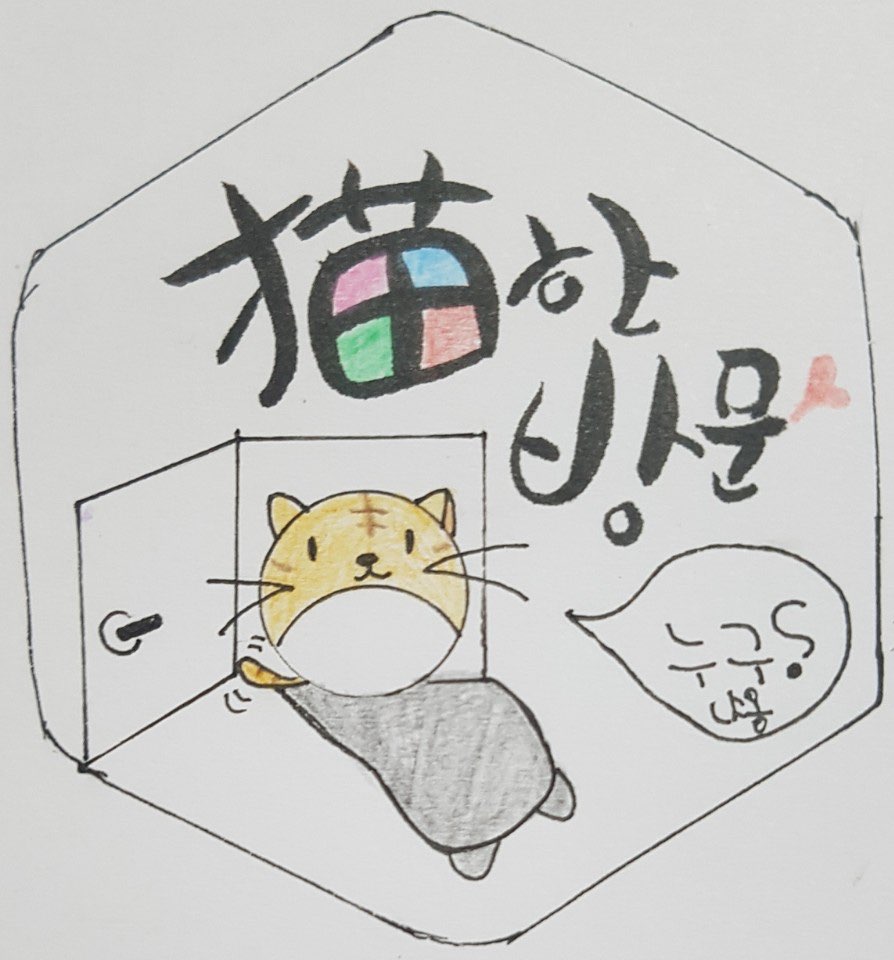 猫한
방문
누구냥?